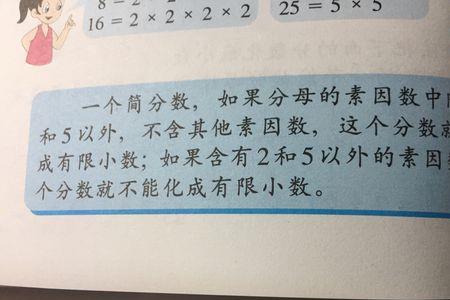 8 = 2
16 = 2 × 2 × 2 × 2
25 = 5 × 5
一个简分数，如果分母的素因数中
和5以外，不含其他素因数，这个分数
成有限小数；如果含有2和5以外的素因
个分数就不能化成有限小数。